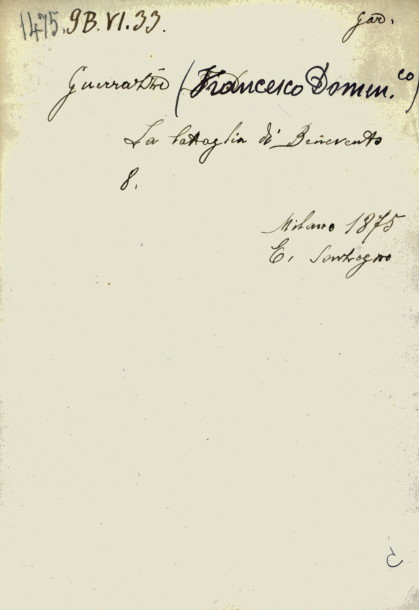 1475. 9B. VI. 33.
Gar.
Guerrazzi (Francesco Domen.co)
La battaglia di Benevento
8.
Milano 1875
E. Sonzogno